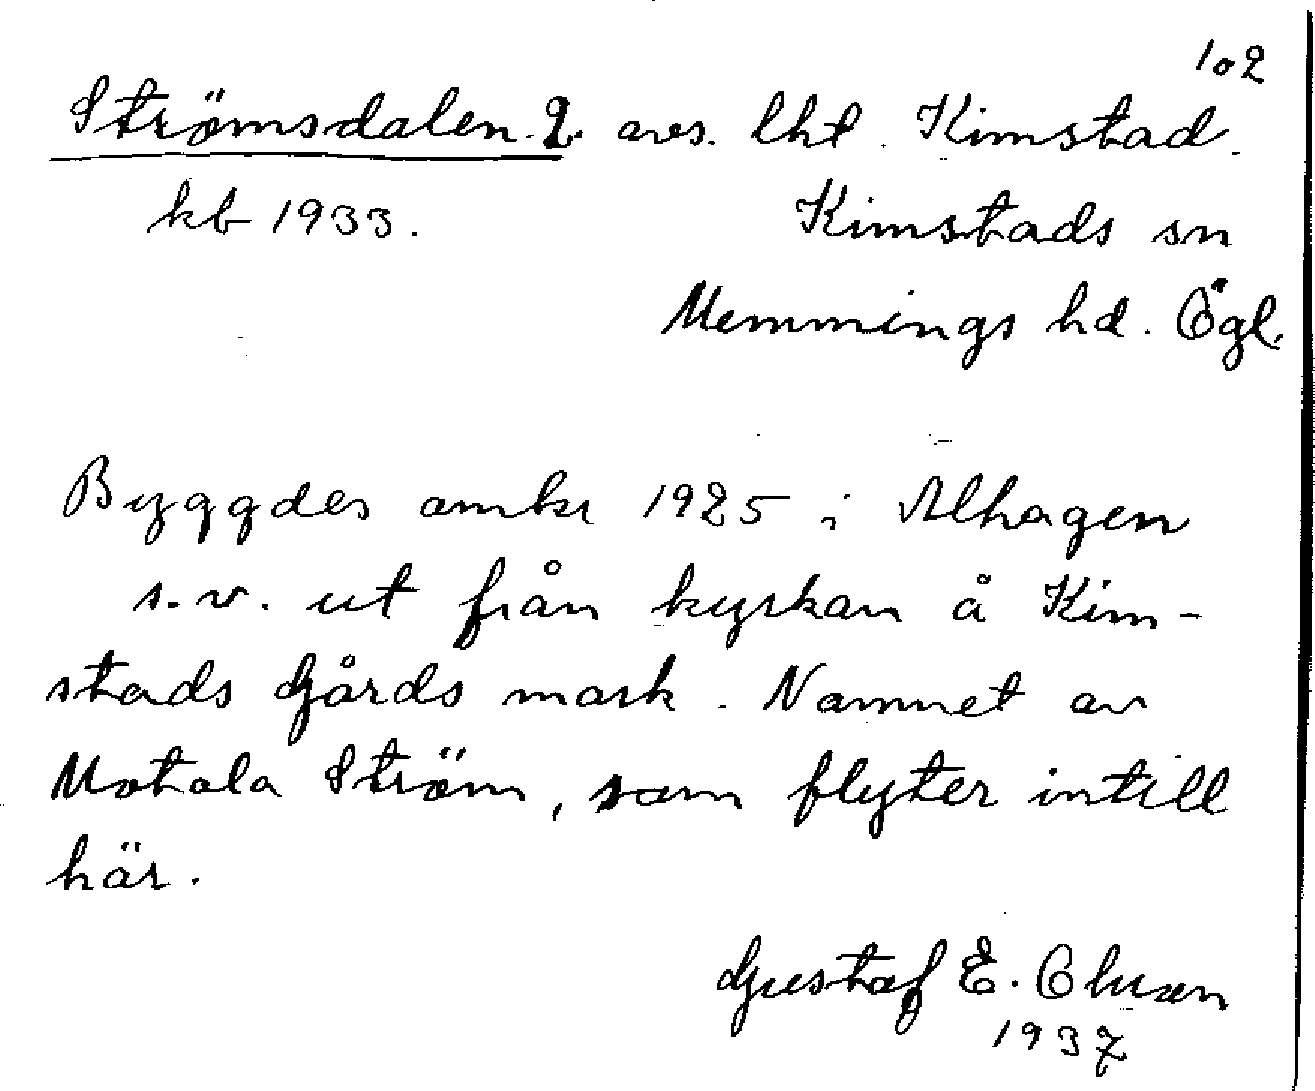 102
Strömsdalen. 2. avs. lht. Kimstad.
kb 1933. Kimstads sn
Memmings hd. Ögl.
Byggdes omkr 1925 i Alhagen
s.v. ut från kyrkan å Kim-
stads Gårds mark. Namnet av
Motala Ström, som flyter intill
här.
Gustaf E.
1937